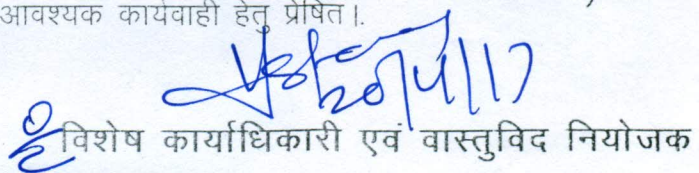 आवश्यक कार्यवाही हेतु प्रेषित।.
20/4/17
विशेष कार्याधिकारी एवं वास्तुविद नियोजक